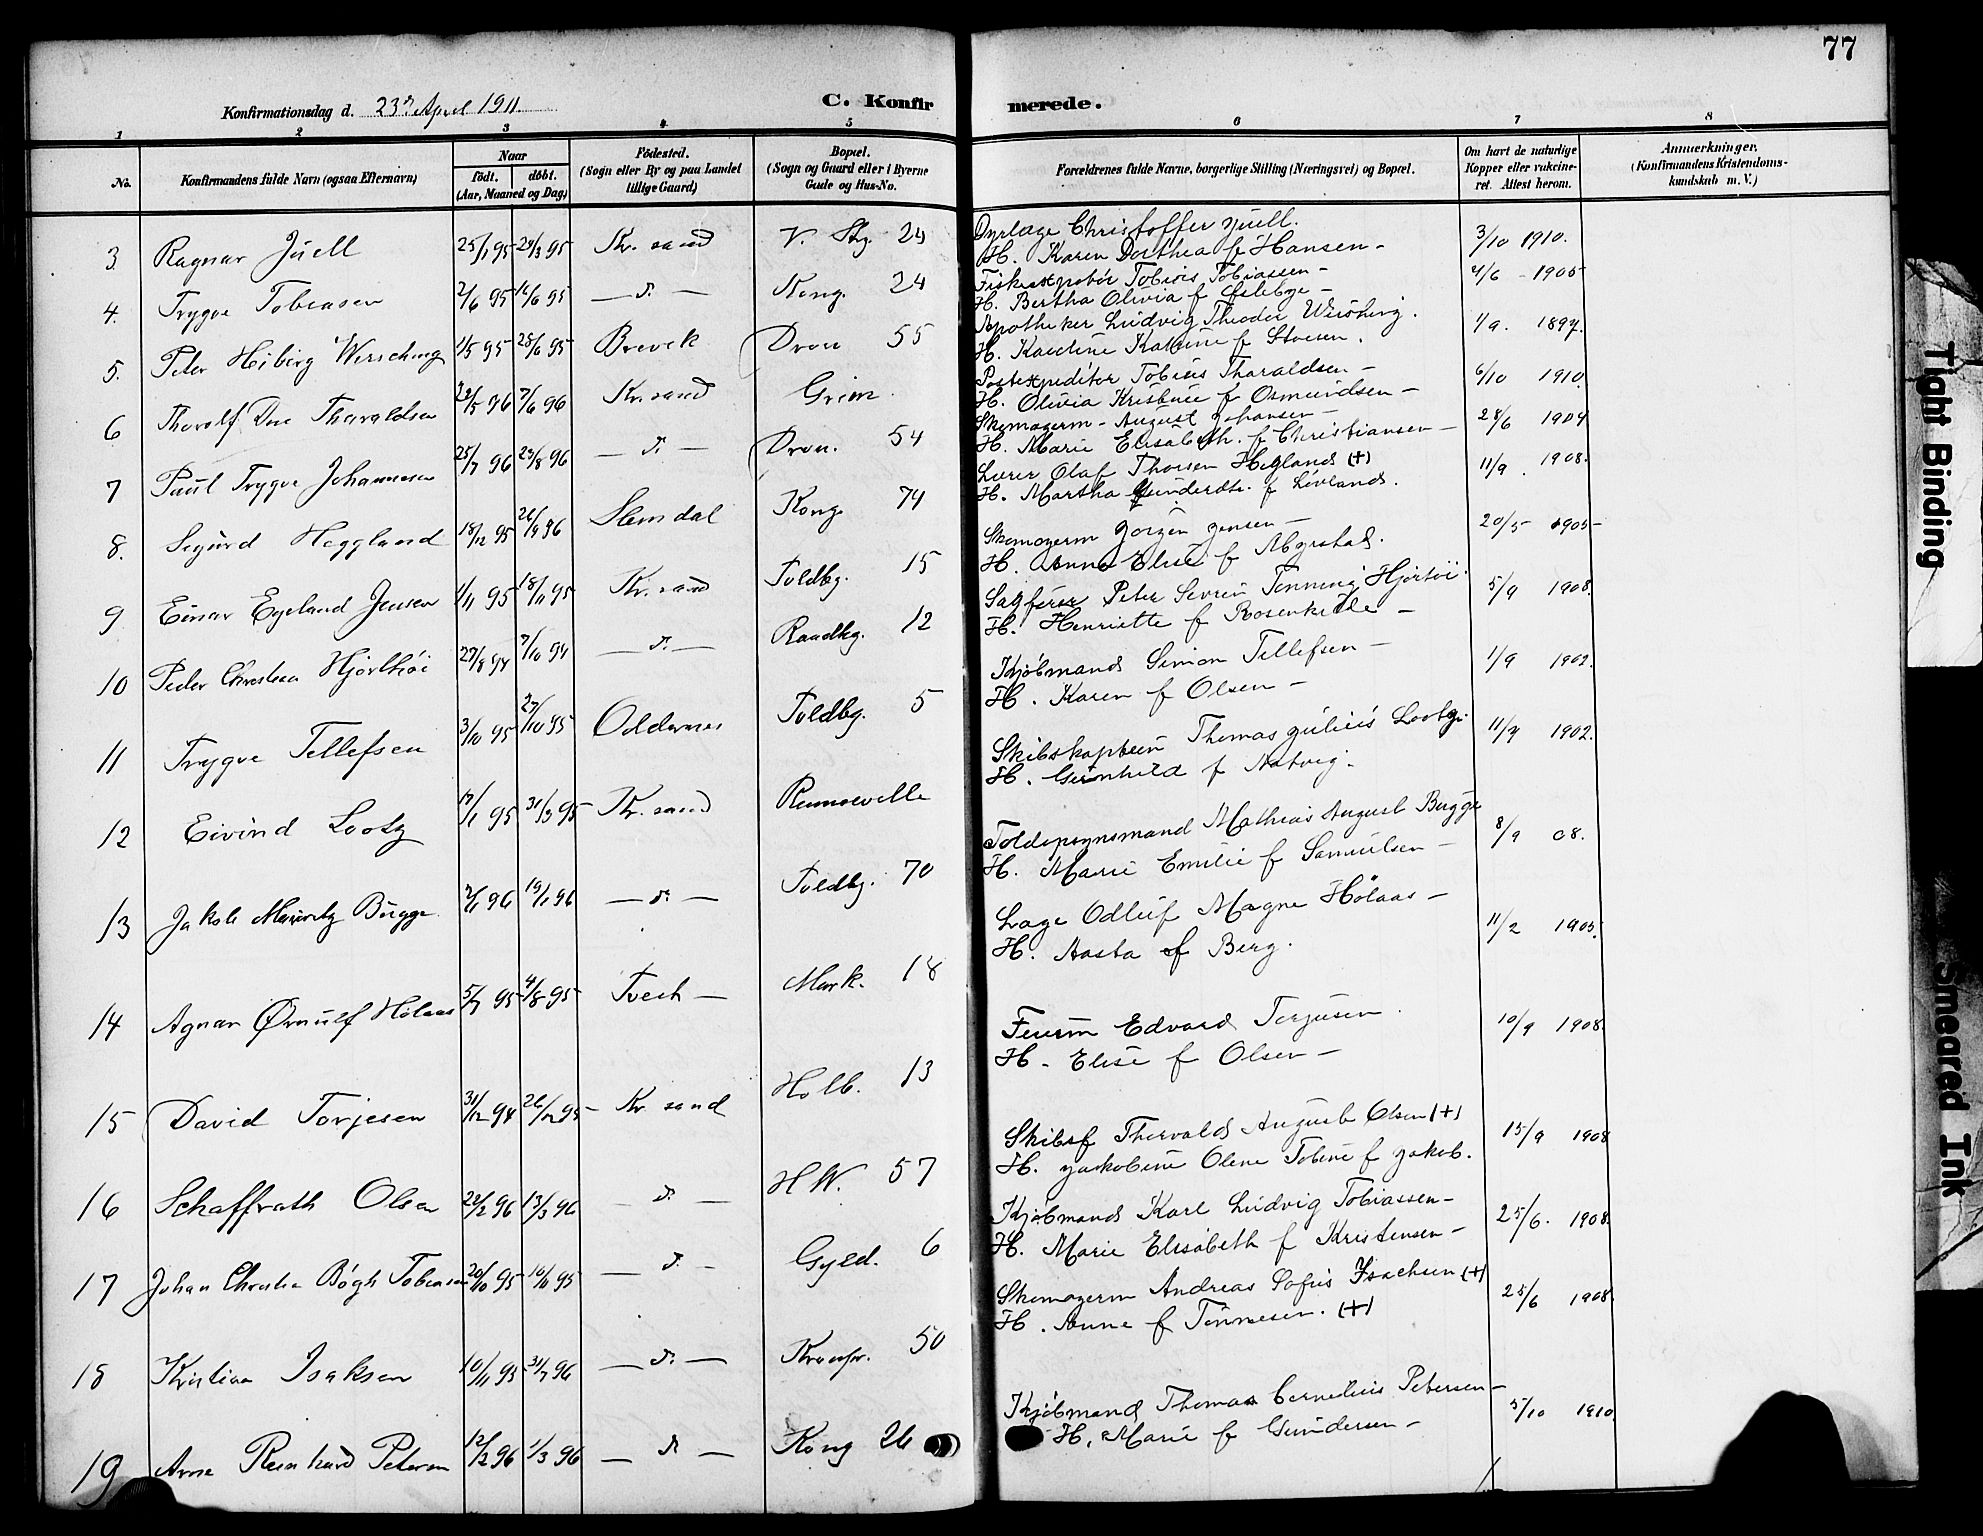 77
Konfirmationsdag d. 23de April 1911.
C. Konfirmerede.
1 2 3 4 5 6 7 8
No.
Konfirmandens fulde Navn (ogsaa Efternavn)
Naar
födt. döbt.
(Aar, Maaned og Dag)
Födested.
(Sogn eller By og paa Landet
tillige Gaard)
Bopæl.
(Sogn og Gaard eller i Byerne
Gade og Hus-No.
Forældrenes fulde Navne, borgerlige Stilling (Næringsvei) og Bopæl.
Om havt de naturlige
Kopper eller vakcine-
ret. Attest herom.
Anmærkninger.
(Konfirmandens Kristendoms-
kundskab m. V.)
3. Ragnar Juell 25/1 95 24/3 95 Kr. sand V. Stg. 24 Dyrlæge Christoffer Juell.
H. Karen Dorthea f Hansen - 3/10 1910.
4. Trygve Tobiasen 2/6 95 16/6 95 — d. — Kong. 24 Tobias Tobiassen -
H. Bertha Olivia f 4/6 - 1905
5. Peter Heiberg Wersching 1/5 95 25/6 95 Brevek Dron 55 Apotheker Ludvig Theodor
H. Karoline Katrine f 1/9. 1897.
6 Thoralf Due Tharaldsen 22/5 96 7/6 96 Kr. sand Grim. Postexpeditör Tobias Tharaldsen -
H. Olivia Kristine f Osmundsen - 6/10 1910.
7 Paul Trygve Johannesen 25/7 96 23/8 96 — d. — Dron. 54 Skomagerm - August Johansen -
H. Marie Elisabeth. f Christiansen - 28/6 1904
8. Sigurd Heggland 18/12 95 26/1 96 Kong. 74 Lærer Olaf Thorsen Hegland (+)
H. Martha Gunderdtr. f Livlands. 11/9. 1908.
9 Einar Egeland Jensen 1/11 95 18/11 95 Kr. sand Toldbg. 15 Skomagerm Jorgen Jensen -
H. Anna Elise f 20/5 1905-
10 Peder Christian Hjorthöi 27/8 94 7/10 94 — d. — Raadhg. 12 Sagförer Peter Severin Tönning Hjortöi.
H. Henriette f Rosenkilde - 5/9 1908.
11 Trygve Tellefsen 3/10 95 27/10 95 Oddernes Toldbg. 5 Kjöbmand Simon Tellefsen -
H. Karen f Olsen - 1/9 1902.
12 Eivind Lootz 17/1 95 31/3 95 Kr. sand Skibskaptein Thomas Julius Lootz.
H. Gunhild f Natvig. 11/9 1902.
13 Jakob Mauritz Bugge 2/1 96 19/1 96 — d. — Toldbg. 70 Toldopsynsmand Mathias August Bugge
H. Marie Emilie f Samuelsen - 8/9 08.
14 Agnar Ørnulf Holaas 5/7 95 4/8 95 Tveit — Mark. 18 Læge Odleif Magne Holaas -
H. Aasta f Berg. 11/2 1905.
15 David Torjesen 31/12 94 26/12 95 Kr sand Holb. 13 Feierm Edvard Torjusen.
H. Elise f Olsen - 10/9 1908.
16 Schaffrath Olsen 22/2 96 13/3 96 — d. — H.W. 57 Skibsf Thorvald August Olsen (+)
H. Jakobine Olene Tobine f Jakob. 15/9 1908
17 Johan Christian Bögh Tobiassen 20/10 95 10/11 95 — d. — Gyld. 6 Kjöbmand Karl Ludvig Tobiassen -
H. Marie Elisabeth f Kristensen - 25/6. 1908.
18 Kristian Isaksen 10/11 95 31/7 96 — d. — Kronpr. 50 Skomagerm Andreas Sofus Isachsen (+)
H. Anne f Tönnesen. (+) 25/6 1908.
19 Arne Reinhard Petersen 12/2 96 1/3 96 — d. — Kong 26 Kjöbmand Thomas Cornelius Petersen -
H. Marie f Gundersen - 5/10 1910.
Tight Binding
Smeared Ink